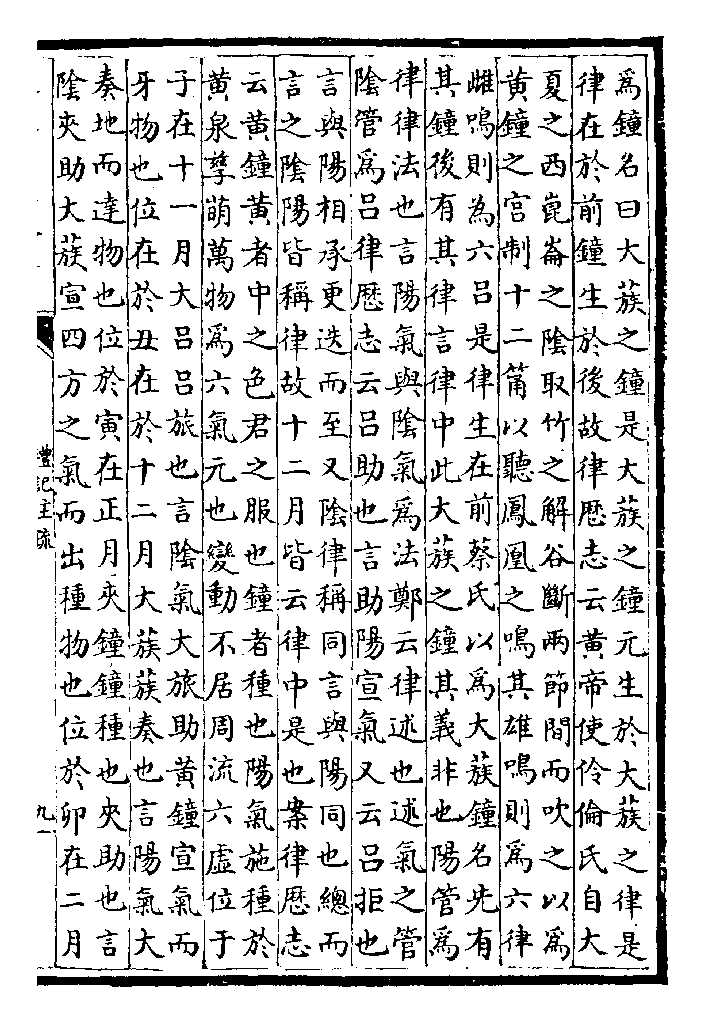 爲鐘名曰大蔟之鐘是大蔟之鐘元生於大蔟之律是
律在於前鐘生於後故律厯志云黄帝使伶倫氏自大
夏之西崑崙之陰取竹之解谷斷兩節間而吹之以爲
黄鐘之宫制十二筩以聽鳳凰之鳴其雄鳴則爲六律
雌鳴則為六吕是律生在前蔡氏以爲大蔟鐘名先有
其鐘後有其律言律中此大蔟之鐘其義非也陽管爲
律律法也言陽氣與陰氣爲法鄭云律述也述氣之管
陰管爲吕律厯志云吕助也言助陽宣氣又云吕拒也
言與陽相承更迭而至又陰律稱同言與陽同也總而
言之陰陽皆稱律故十二月皆云律中是也案律厯志
云黄鐘黄者中之色君之服也鐘者種也陽氣施種於
黄泉孳萌萬物爲六氣元也變動不居周流六虚位于
子在十一月大吕吕旅也言陰氣大旅助黄鐘宣氣而
牙物也位在於丑在於十二月大蔟蔟奏也言陽氣大
奏地而達物也位於寅在正月夾鐘鐘種也夾助也言
陰夾助大蔟宣四方之氣而出種物也位於卯在二月
禮記注疏
九